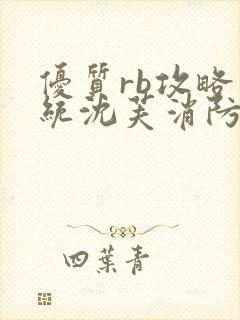 優質rb攻略
統沈芙消防
四葉青